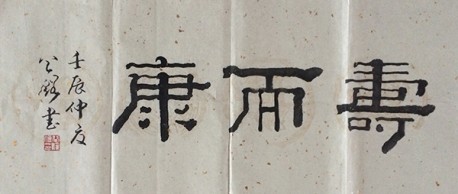 壽而康
壬辰仲夏
公錫书